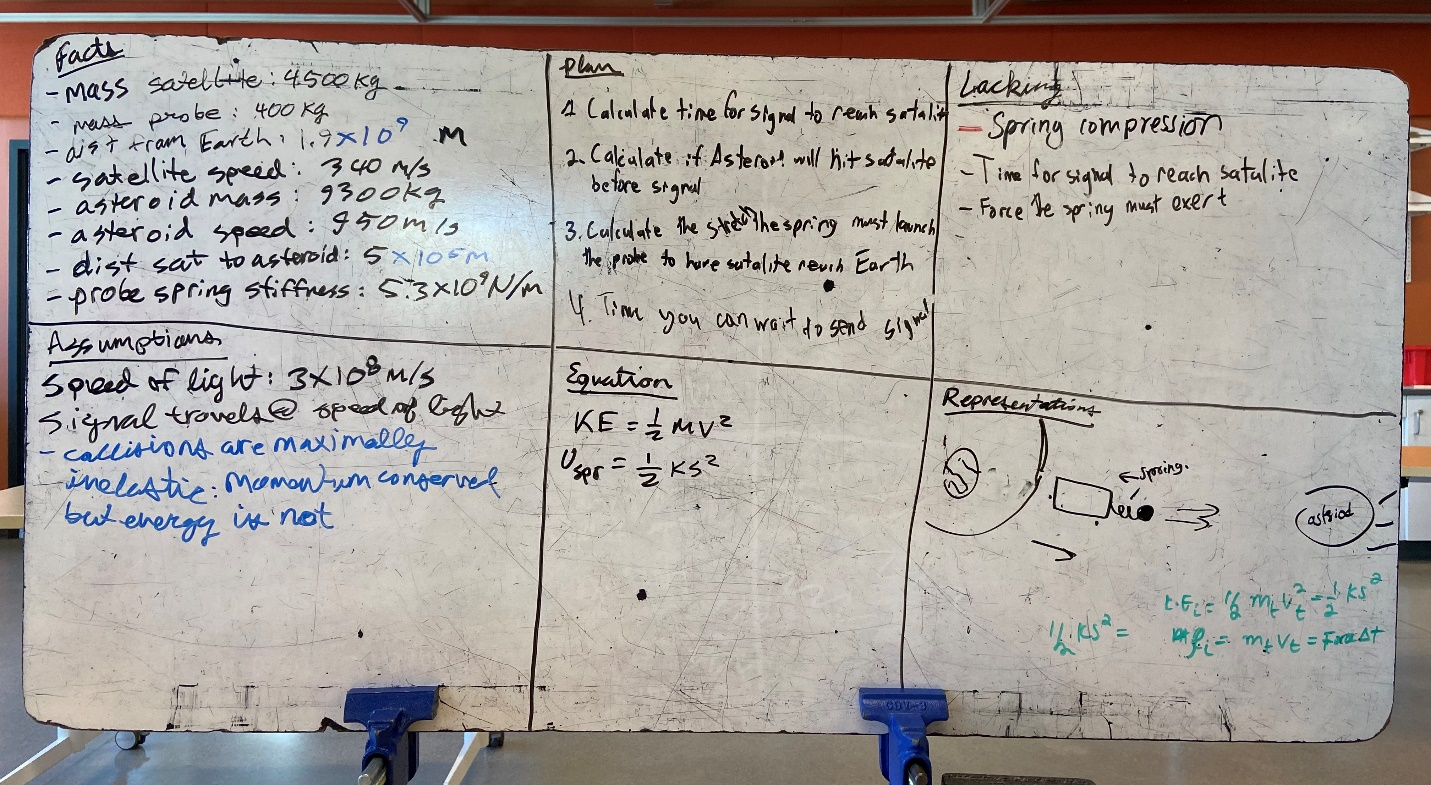 Facts
- mass satellite: 4500 kg
- mass probe: 400 kg
- dist from Earth: 1.9×10⁹ M
- satellite speed: 340 m/s
- asteroid mass: 9300kg
- asteroid speed: 950m/s
- dist sat to asteroid: 5×10⁵m
- probe spring stiffness: 5.3×10⁹N/m
Assumptions
Speed of light: 3×10⁸ m/s
Signal travels @ speed of light
- collisions are maximally
inelastic: momentum conserved
but energy is not
Plan
1. Calculate time for signal to reach satalite
2. Calculate if Asteroid will hit satalite
before signal
3. Calculate the the spring must launch
the probe to have satalite reach Earth
4. Time you can wait to send signal
Equation
KE = ½ mv²
Uspr = ½ ks²
Lacking
- Spring compression
- Time for signal to reach satalite
- Force the spring must exert
Representations
spring.
astriod
k.Ei = ½ mt vt² = ½ ks²
½ ks² =
Pi = mt vt = Δt
COV-3